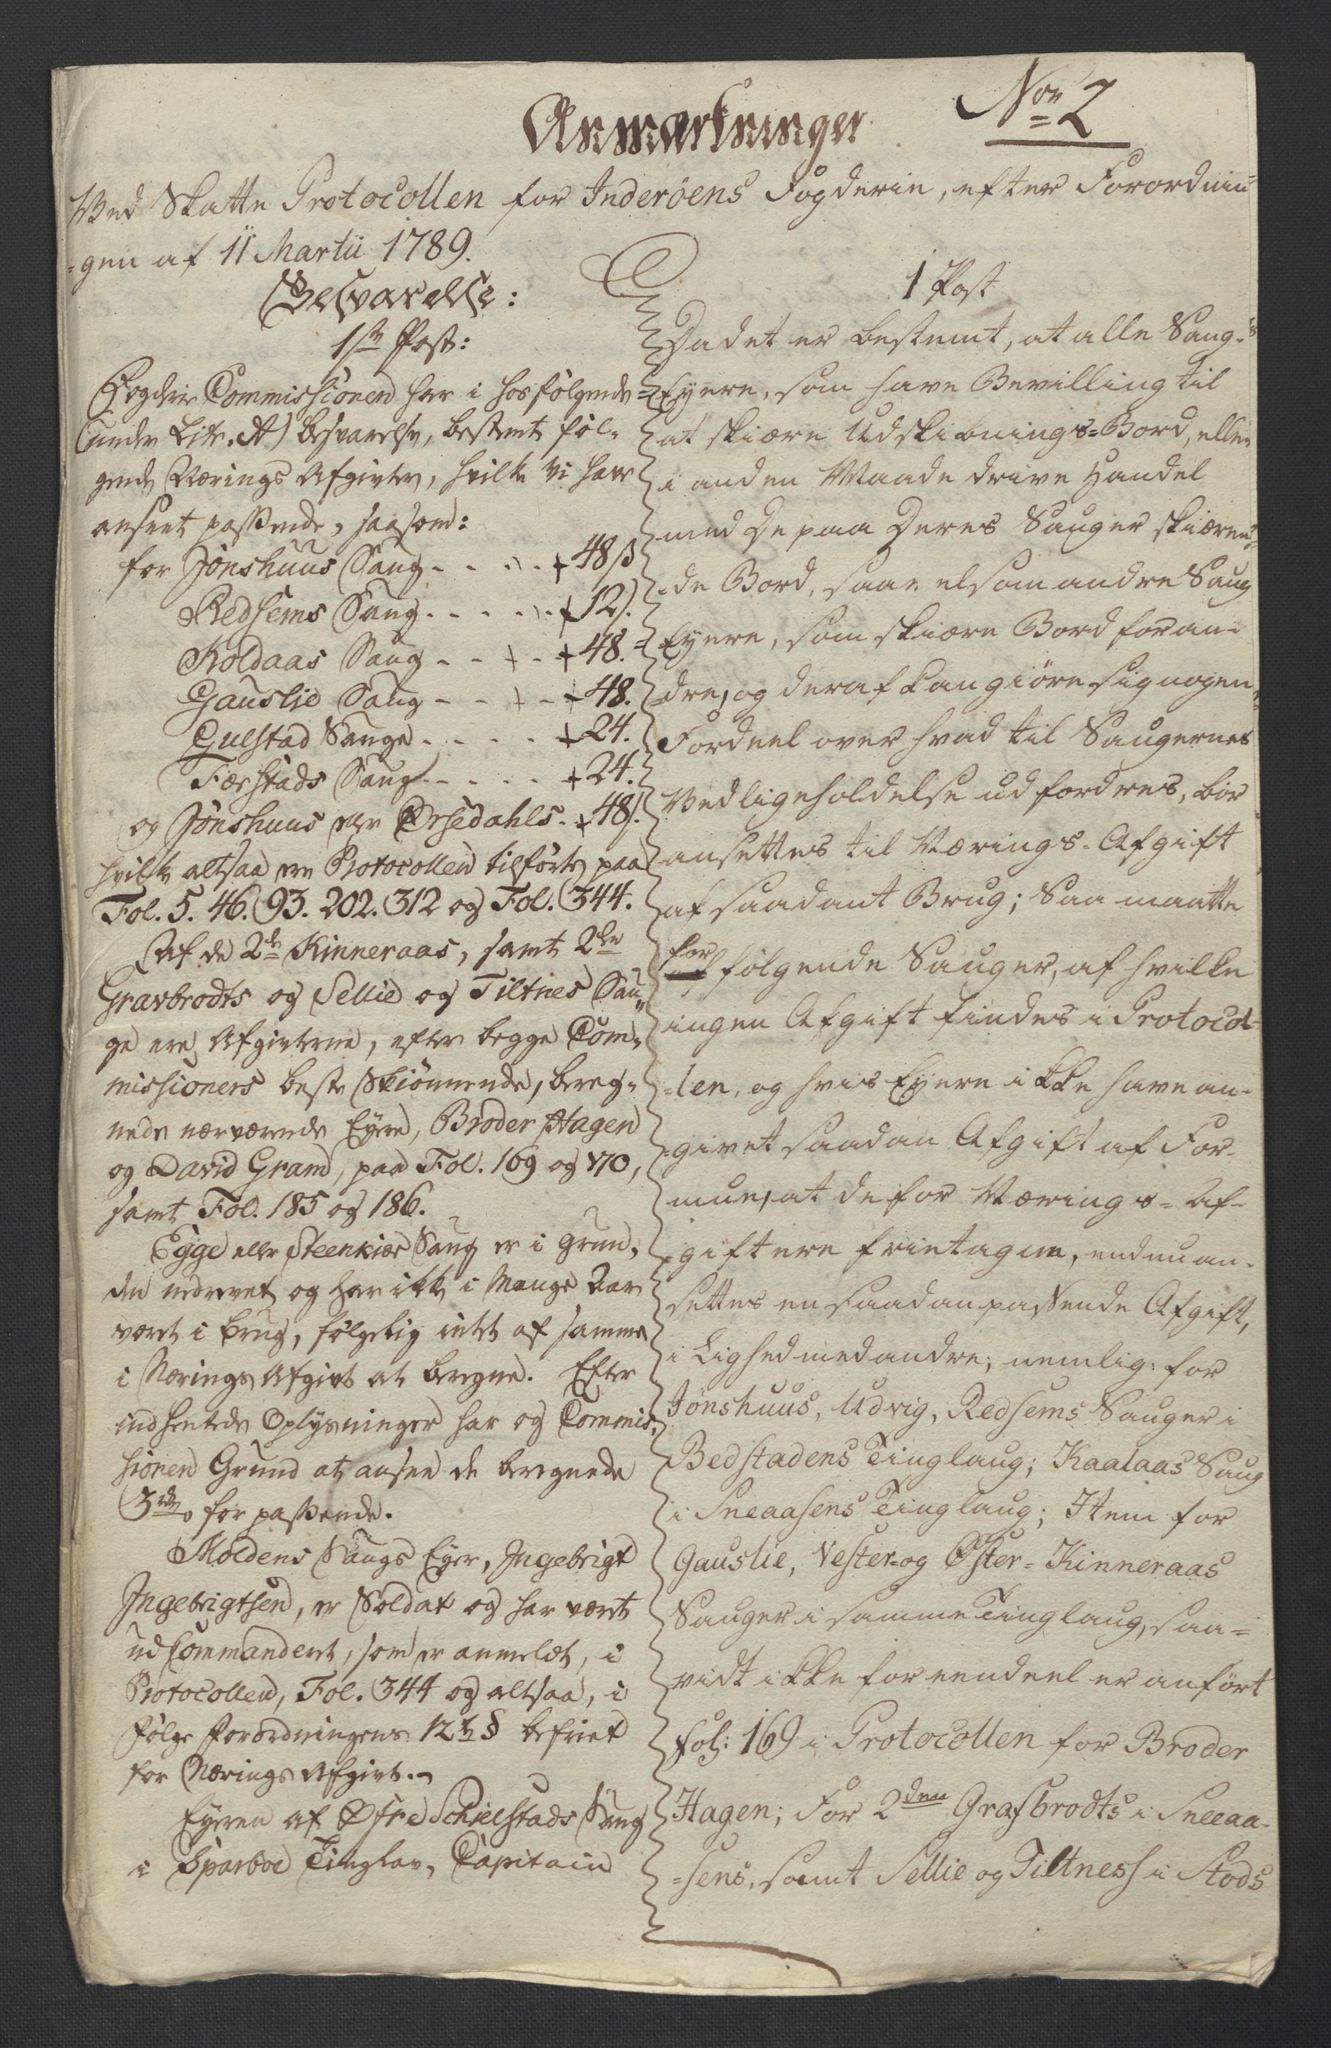 Anmærkninger
No 2
Ved Skatte Protocollen for Inderöens Fogderie, efter Forordnin-
gen af 11 Martii 1789.
Besvarelse:
1ste Post:
Fogderie Commissionen har i hosfölgende
(under Litr. A) besvarelse, bestemt föl-
gende Nærings Afgivter, hvilke vi har
anseet passende, saasom:
for Jönshuus Saug - - - - 48 s
Redsems Saug - - - - - 12 s.
Koldaas Saug - - - - 48.
Gauslie Saug - - - - 48.
Gulstad Sauge - - - - 24.
Færstads Saug - - - - 24.
og Jönshuus eller Ørsedahls - 48 s.
hvilke altsaa ere Protocollen tilförte paa
Fol. 5. 46. 93. 202. 312 og Fol. 344.
Af de 2de Kinneraas, samt 2de
Gravbrodts og Sellie og Tiltnes Sau-
ge ere Afgivterne, efter begge Com-
missioners beste Skiönnende, bereg-
nede nærværende Eyere, Broder Hagen
og David Gram, paa Fol. 169 og 170,
samt Fol. 185 og 186.
Egge eller Steenkiær Saug er i Grun-
den nedrevet og har ikke i Mange Aar
været i brug, fölgelig intet af samme
i Nærings Afgivt at beregne. Efter
indhentede Oplysninger har og Commis-
sionen Grund at ansee de beregnede
3 for passende.
Moldens Saugs Eyer, Ingebrigt
Ingebrigtsen, er Soldat og har været
ud Commanderet, som er anmeldt, i
Protocollen, Fol. 344 og altsaa, i
fölge Forordningens 12te § befriet
for Nærings Afgivt.
Eyeren af Østre Schielstads Saug
i Sparboe Tinglav, Capitain
1 Post
Da det er bestemt, at alle Saug-
Eyere, som have Bevilling til
at skiære Udskibnings-Bord, eller
i anden Maade drive Handel
med De paa Deres Sauger skiæren-
de Bord, saavelsom andre Saug
Eyere, som skiære Bord for an-
dre, og deraf kan giöre sig nogen
Fordeel over hvad til Saugernes
Vedligeholdelse udfordres, bör
ansettes til Nærings-Afgift
af saadant Brug; Saa maatte
for fölgende Sauger, af hvilke
ingen Afgift findes i Protocol-
len, og hvis Eyere ikke have an-
givet saadan Afgift af For-
mue, at de for Nærings-Af-
gift ere frietagne, endnu an-
settes en saadan passende Afgift,
i Lighed med andre; nemlig: for
Jönshuus, Udvig, Redsems Sauger i
Bedstadens Tinglaug; Kaalaas Saug
i Sneaasens Tinglaug; Item for
Gauslie, Vester- og Öster-Kinneraas
Sauger i samme Tinglaug, saa-
vidt ikke for eendeel er anfört
fol: 169 i Protocollen for Broder
Hagen; For 2den Grafbrodts i Sneeaa-
sens, samt Sellie og Tiltness i Stods